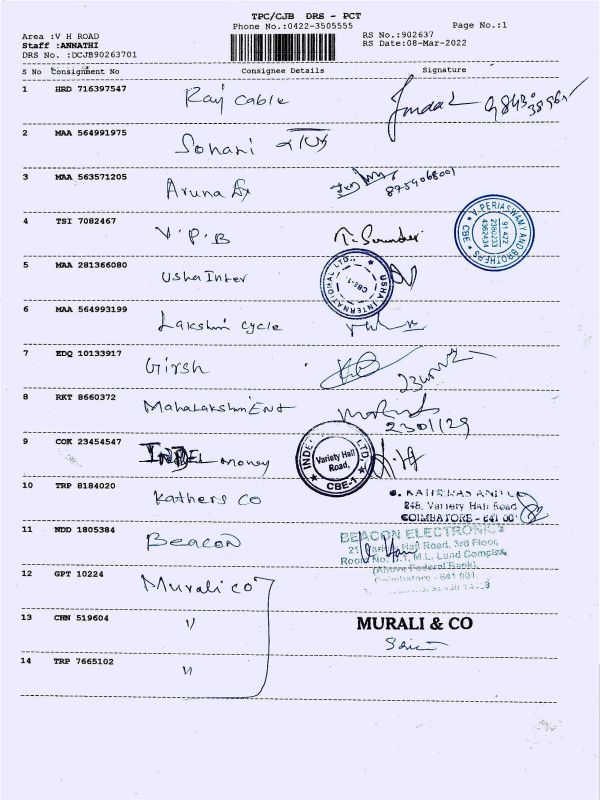 TPC/CJB DRS - PCT
Phone No.:0422-3505555
Page No.:1
Area :V H ROAD
RS No.:902637
Staff :ANNATHI
RS Date:08-Mar-2022
DRS No. :DCJB90263701
S No Consignment No Consignee Details Signature
1 HRD 716397547 Raj Cable
2 MAA 564991975 Sonani
3 MAA 563571205 Aruna 8754068001
4 TSI 7082467 V.P.B T. Sounder
A. PERIASWAMY AND BROTHERS
CBE
91 422
2380233
4362434
5 MAA 281366080 Usha Inter
USHA INTERNATIONAL LTD.,
CBE-1
6 MAA 564993199 Lakshmi cycle
7 EDQ 10133917 Girsh
8 RKT 8660372 Mahalakshmi Ent
2301129
9 COK 23454547 INDEL money
Variety Hall
Road,
CBE-1
10 TRP 8184020 Kathers Co
246, Variety Hall Road
COIMBATORE - 641 001
11 NDD 1805384 Beacon
BEACON ELECTRONICS
21, Variety Hall Road, 3rd Floor,
M.L. Lund Complex,
(Above Federal Bank),
Coimbatore - 641 001.
12 GPT 10224 Murali co
13 CHN 519604 "
MURALI & CO
14 TRP 7665102 "